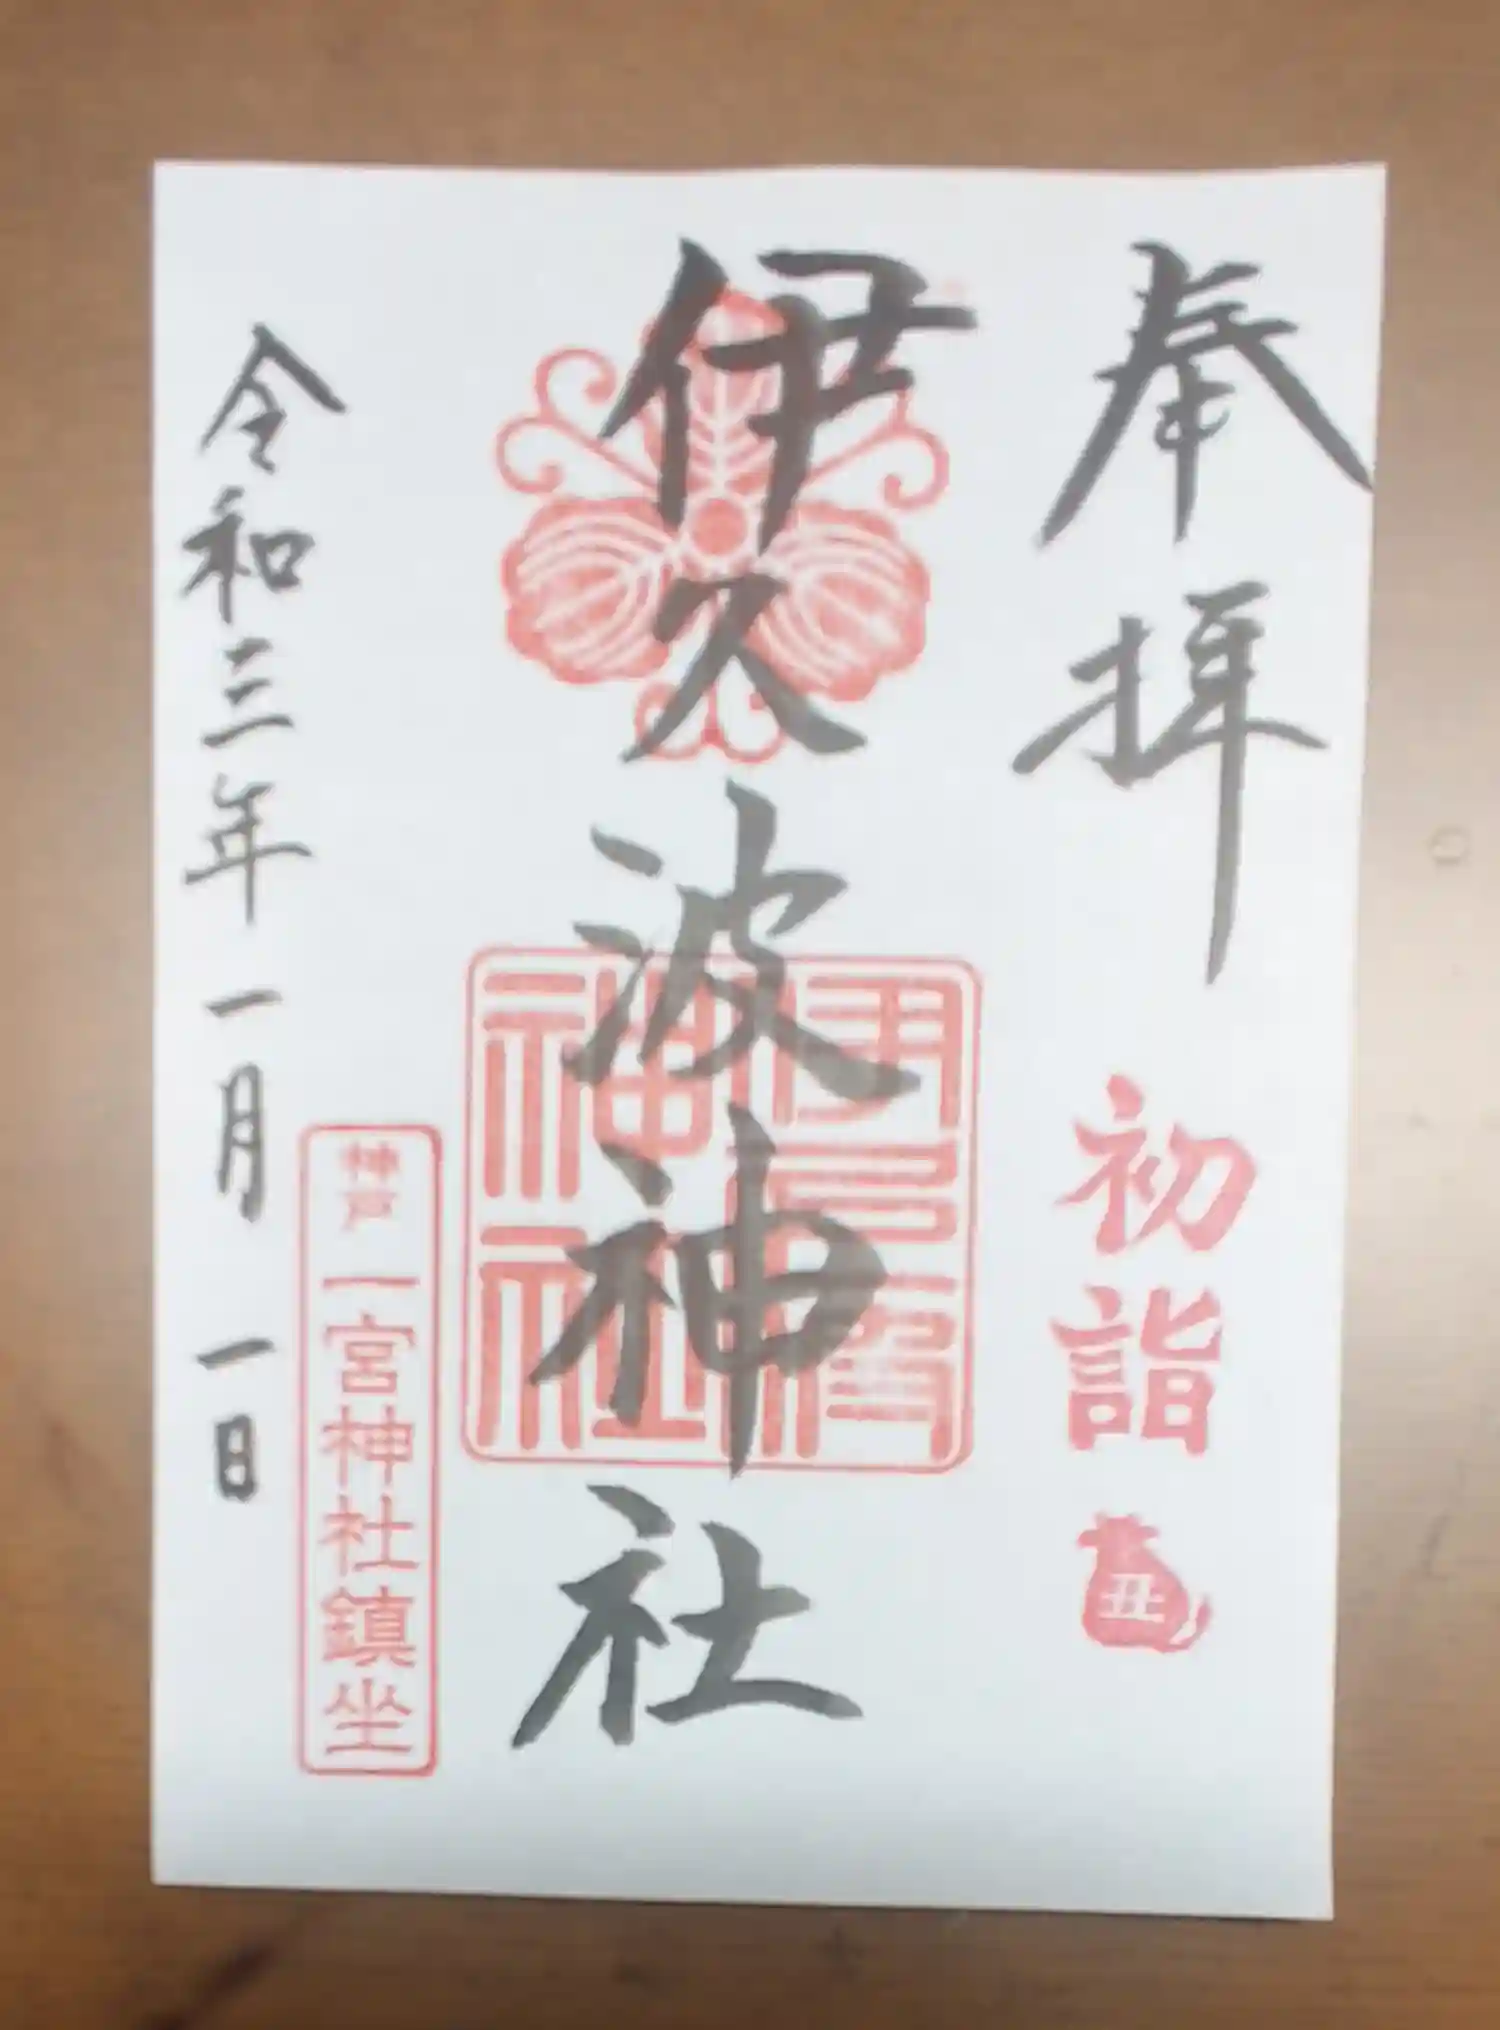 奉拝
初詣
丑
伊久波神社
伊久波
神社
神戸
一宮神社鎮坐
令和三年一月一日